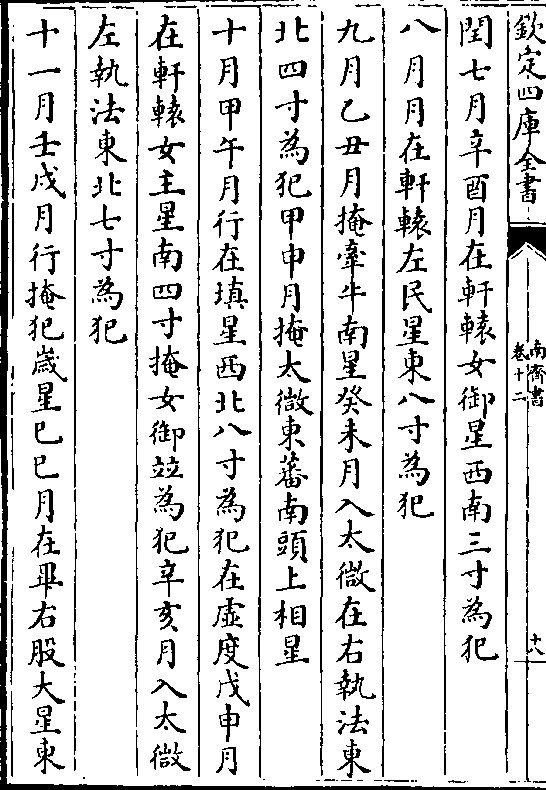 欽定四庫全書
南齊書
卷十二
十八
閏七月辛酉月在軒轅女御星西南三寸為犯
八月月在軒轅左民星東八寸為犯
九月乙丑月掩牽牛南星癸未月入太微在右執法東
北四寸為犯甲申月掩太微東蕃南頭上相星
十月甲午月行在填星西北八寸為犯在虚度戊申月
在軒轅女主星南四寸掩女御竝為犯辛亥月入太微
左執法東北七寸為犯
十一月壬戌月行掩犯歲星巳巳月在畢右股大星東